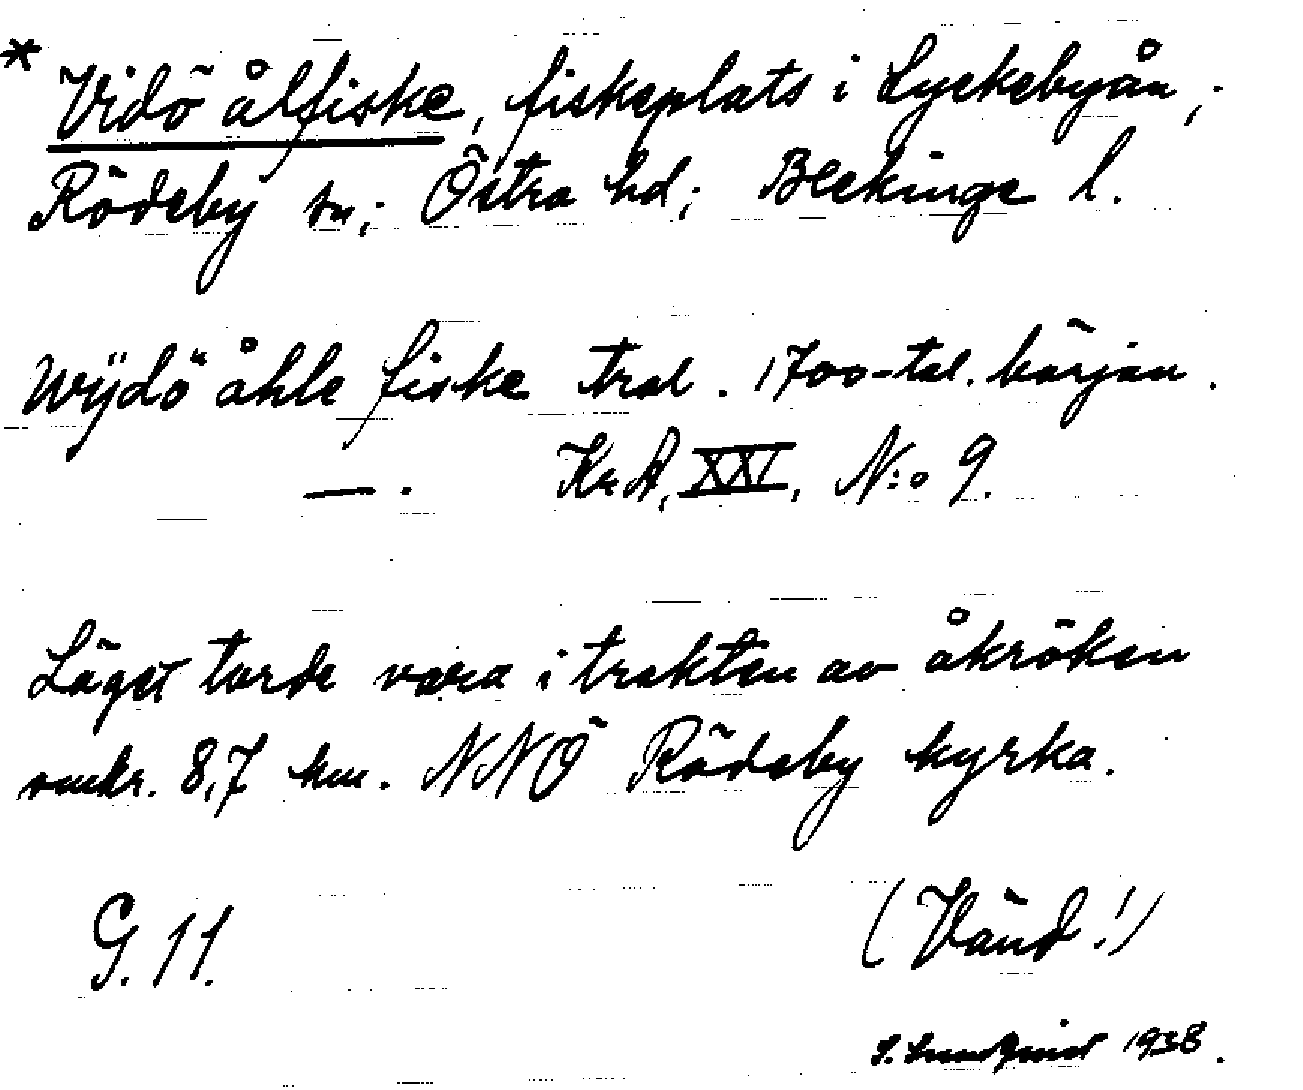 * Vidö ålfiske, fiskeplats i Lyckebyån;
Rödeby sn; Östra hd; Blekinge l.
Wÿdö åhle fiske trol. 1700-tal. början.
— . Kr.A, XXI, N:o 9.
Läget torde vara i trakten av åkröken
omkr. 8,7 km. NNÖ Rödeby kyrka.
G. 11.
(Vänd!)
S. Lundquist 1938.